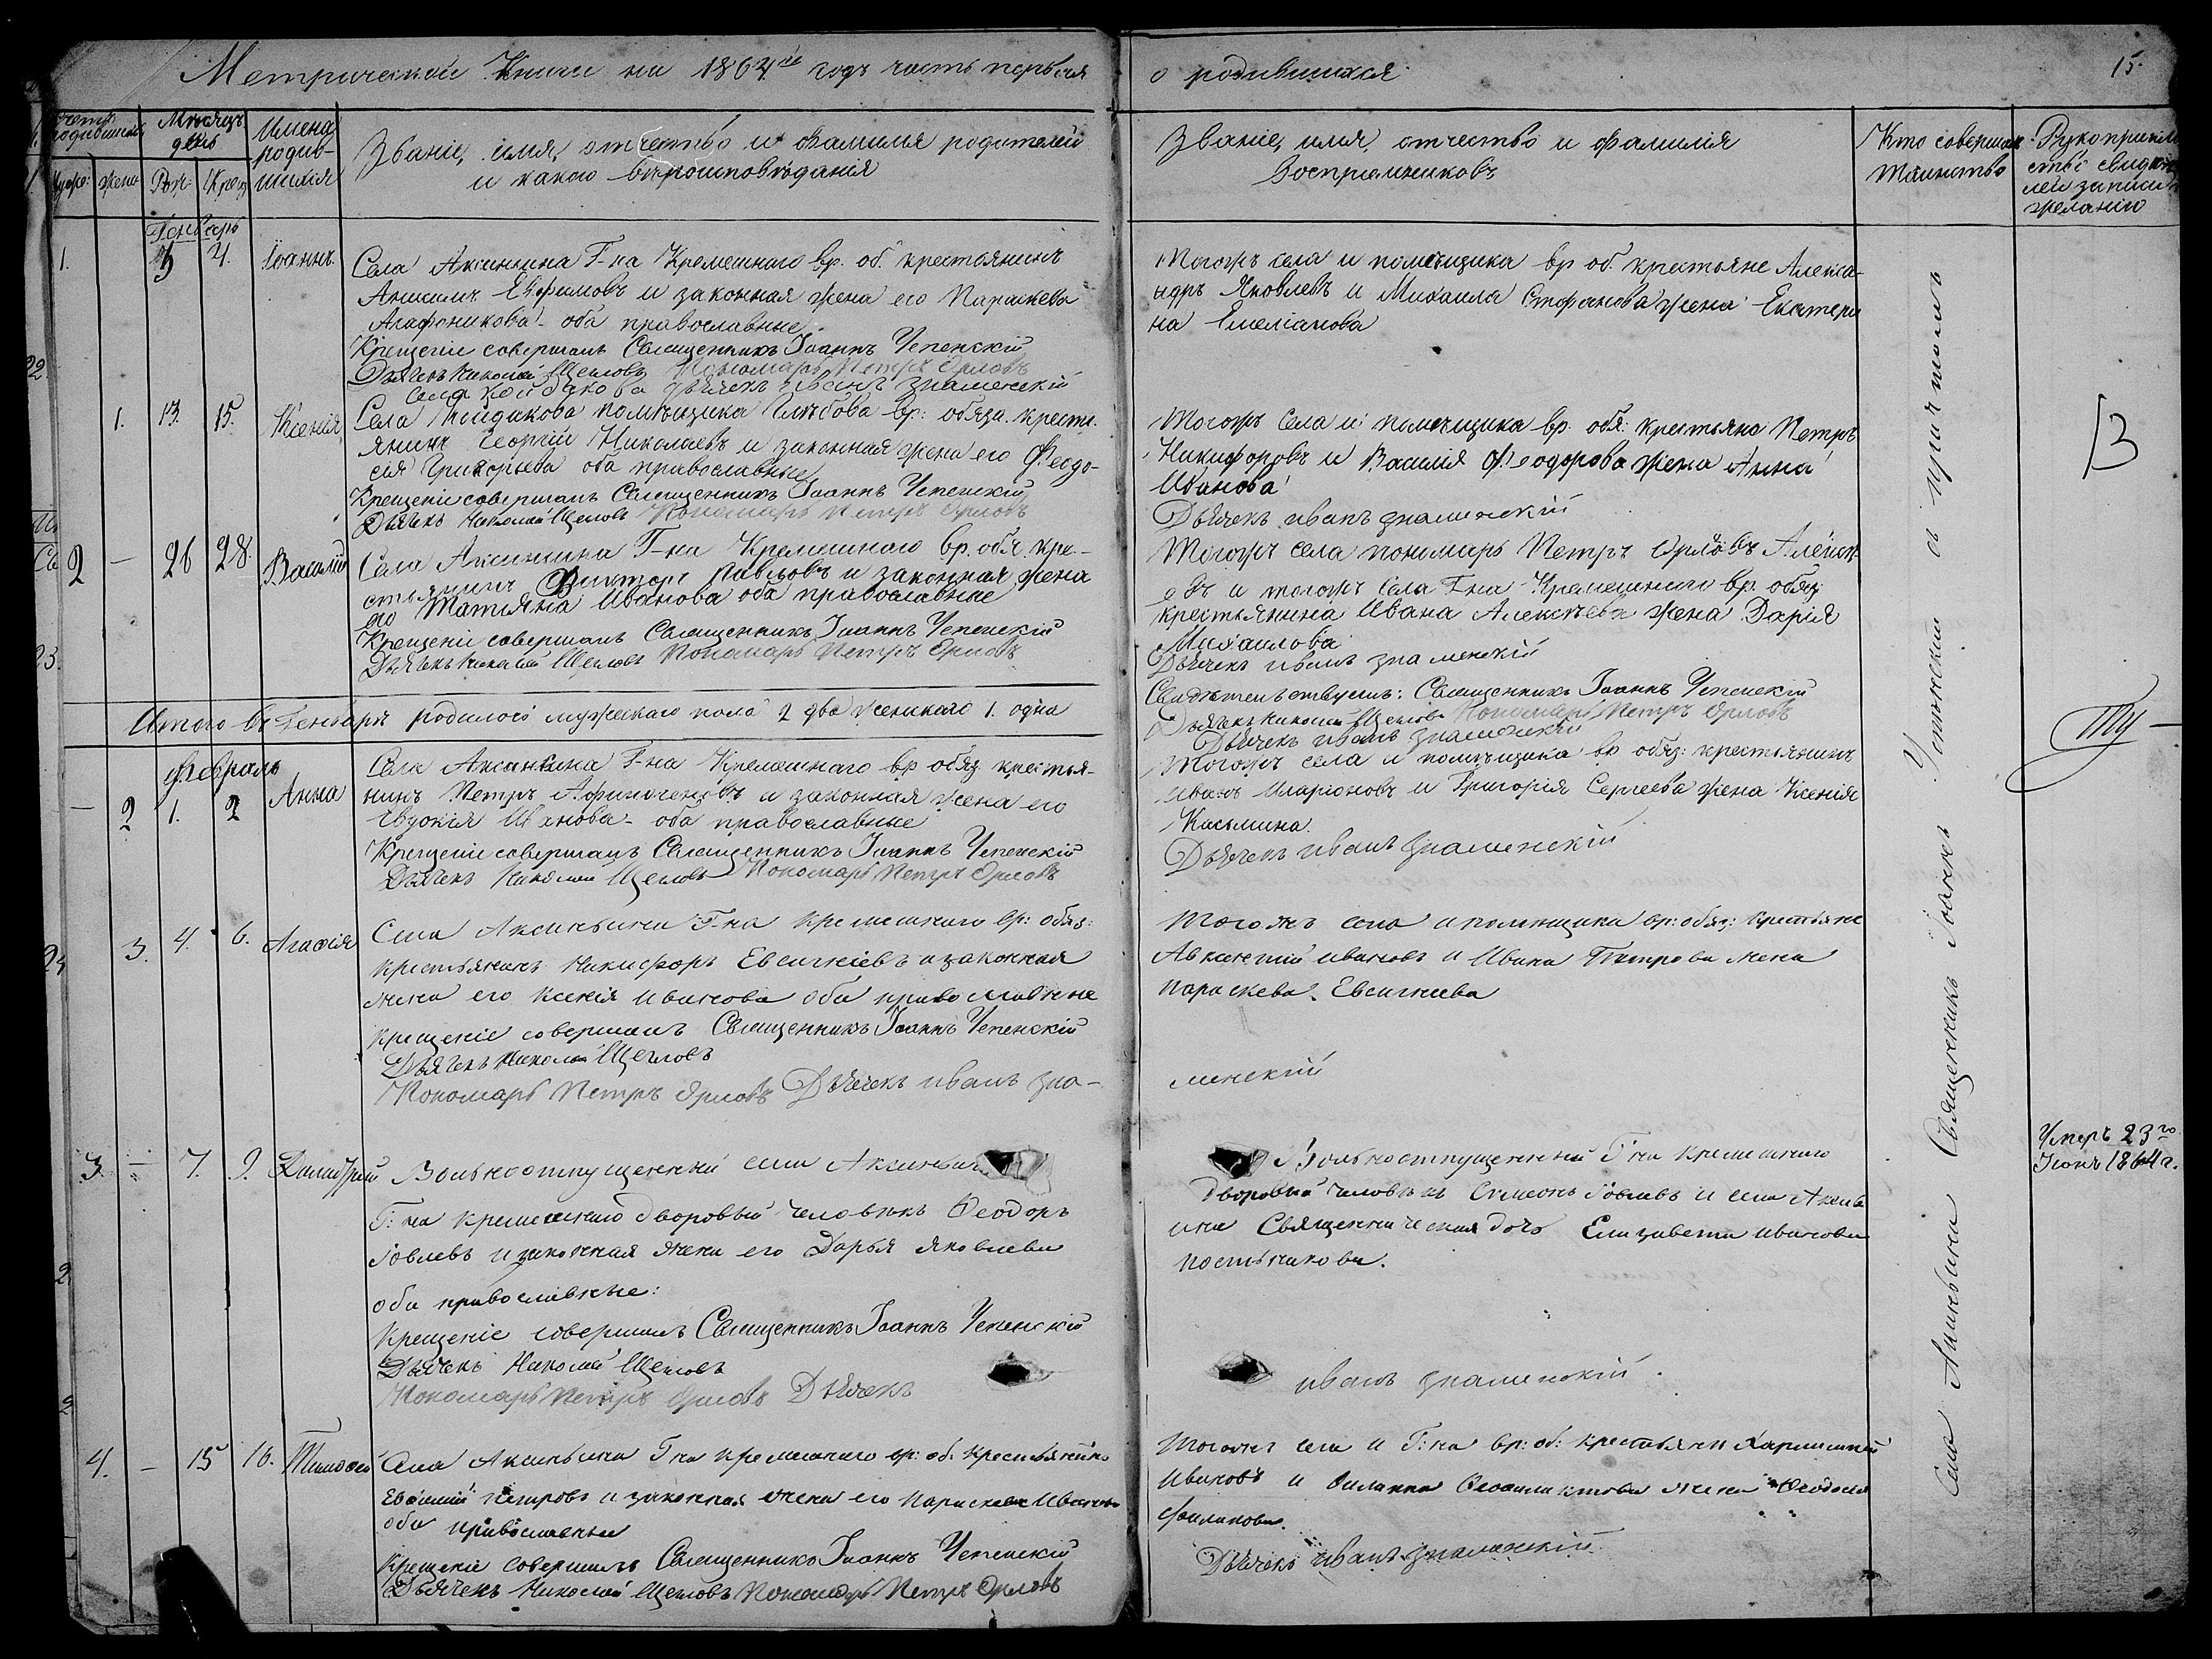 Метрической Книги на 1864й годъ часть первая
о родившихся
15.
Счетъ родившихся
Мѣсяцъ день
Имена родившихся
Званіе, имя, отчество и фамилія родителей
и какого вѣроисповѣданія
Муже: жен:
Рож: Крещ:
Званіе, имя, отчество и фамилія
Воспріемниковъ
Кто совершалъ таинство
Рукоприкладство свидѣтелей записи по желанію
Генварь
1. 3 4. Іоаннъ.
Села Аксиньина Г-на Кремешнаго вр. об. крестьянинъ
Евфимовъ и законная жена его Параскева
Агафоникова - оба православные.
Крещеніе совершалъ Священникъ Іоаннъ Успенскій
Дьячекъ Николай Щегловъ Пономарь Петръ Орловъ
дьячекъ иванъ знаменскій
Тогожъ села и помѣщика вр. об. крестьяне Алекса-
ндръ Яковлевъ и Михаила Стефанова жена Екатери
на Емеліанова
1. 13. 15. Ксенія
Села помѣщика Глѣбова вр: обяза. крестья.
янинъ Георгій Николаевъ и законная жена его Феодо-
сія Григорьева оба православные
Крещеніе совершалъ Священникъ Іоаннъ Успенскій
Дьячекъ Николай Щегловъ Пономарь Петръ Орловъ
Тогожъ села и помѣщика вр. обя: крестьяне Петръ
Никифоровъ и Василія Феодорова жена Анна
Иванова
Дьячекъ иванъ знаменскій
2 — 26 28. Василій
Села Аксиньина Г-на Кремешнаго вр. обя. кре-
стьянинъ Викторъ Павловъ и законная жена
его Татьяна Иванова оба православные
Крещеніе совершалъ Священникъ Іоаннъ Успенскій
Дьячекъ Николай Щегловъ Пономарь Петръ Орловъ
Тогожъ села пономарь Петръ Орловъ
и тогожъ села Г-на Кремешнаго вр. обяз:
крестьянина Ивана Алексѣева жена Дарія
Михаилова
Дьячекъ иванъ знаменскій
Итого въ Генварѣ родилось мужескаго пола 2 два женскаго 1. одна
Свидѣтельствуемъ: Священникъ Іоаннъ Успенскій
Дьячекъ Николай Щегловъ Пономарь Петръ Орловъ
Дьячекъ иванъ знаменскій
Февраль
— 2 1. 2 Анна
Села Аксиньина Г-на Кремешнаго вр обяз крестья-
нинъ Петръ Афиногеновъ и законная жена его
Евдокія Иванова - оба православные
Крещеніе совершалъ Священникъ Іоаннъ Успенскій
Дьячекъ Николай Щегловъ Пономарь Петръ Орловъ
Тогожъ села и помѣщика вр обяз: крестьянинъ
Иванъ Иларіоновъ и Григорія Сергеева жена Ксенія
Касьмина.
Дьячекъ иванъ знаменскій
3. 4. 6. Агафія
Села Аксиньина Г-на Кремешнаго вр: обяз:
крестьянинъ Никифоръ Евсигніевъ и законная
жена его Ксенія Иванова оба православные
крещеніе совершалъ Священникъ Іоаннъ Успенскій
Дьячекъ Николай Щегловъ
Пономарь Петръ Орловъ Дьячекъ иванъ зна-
Тогожъ села и помѣщика вр: обяз: крестьяне
Авксентій Ивановъ и Ивана Петрова жена
Параскева Евсигнеева
менскій
3. — 7. 9. Димитрій
Вольноотпущенный села Аксиньина
Г: на Кремешнаго дворовый человѣкъ Ѳеодоръ
Іовлевъ и законная жена его Дарья Яковлева
оба православные:
Крещеніе совершалъ Священникъ Іоаннъ Успенскій
Дьячекъ Николай Щегловъ
Пономарь Петръ Орловъ Дьячекъ
Вольноотпущенный Г: на Кремешнаго
дворовый человѣкъ Симеонъ Іовлевъ и села Аксинь
ина Священническая дочь Елизавета Иванова
Постникова.
иванъ знаменскій.
Умеръ 23го
Іюня 1864 г.
4. — 15 16. Тимофей
Села Аксиньина Г на Кремешнаго вр: об: крестьянинъ
Евфимій Петровъ и законная жена его Параскева Иванова
оба православные
Крещеніе совершалъ Священникъ Іоаннъ Успенскій
Дьячекъ Николай Щегловъ Пономарь Петръ Орловъ
Тогожъ села и Г: на вр: об: крестьянинъ
Ивановъ и Филиппа Феофилактова жена Феодосія
Филипова.
Дьячекъ иванъ знаменскій
Села Аксиньина Священникъ Іоаннъ Успенскій съ причтомъ